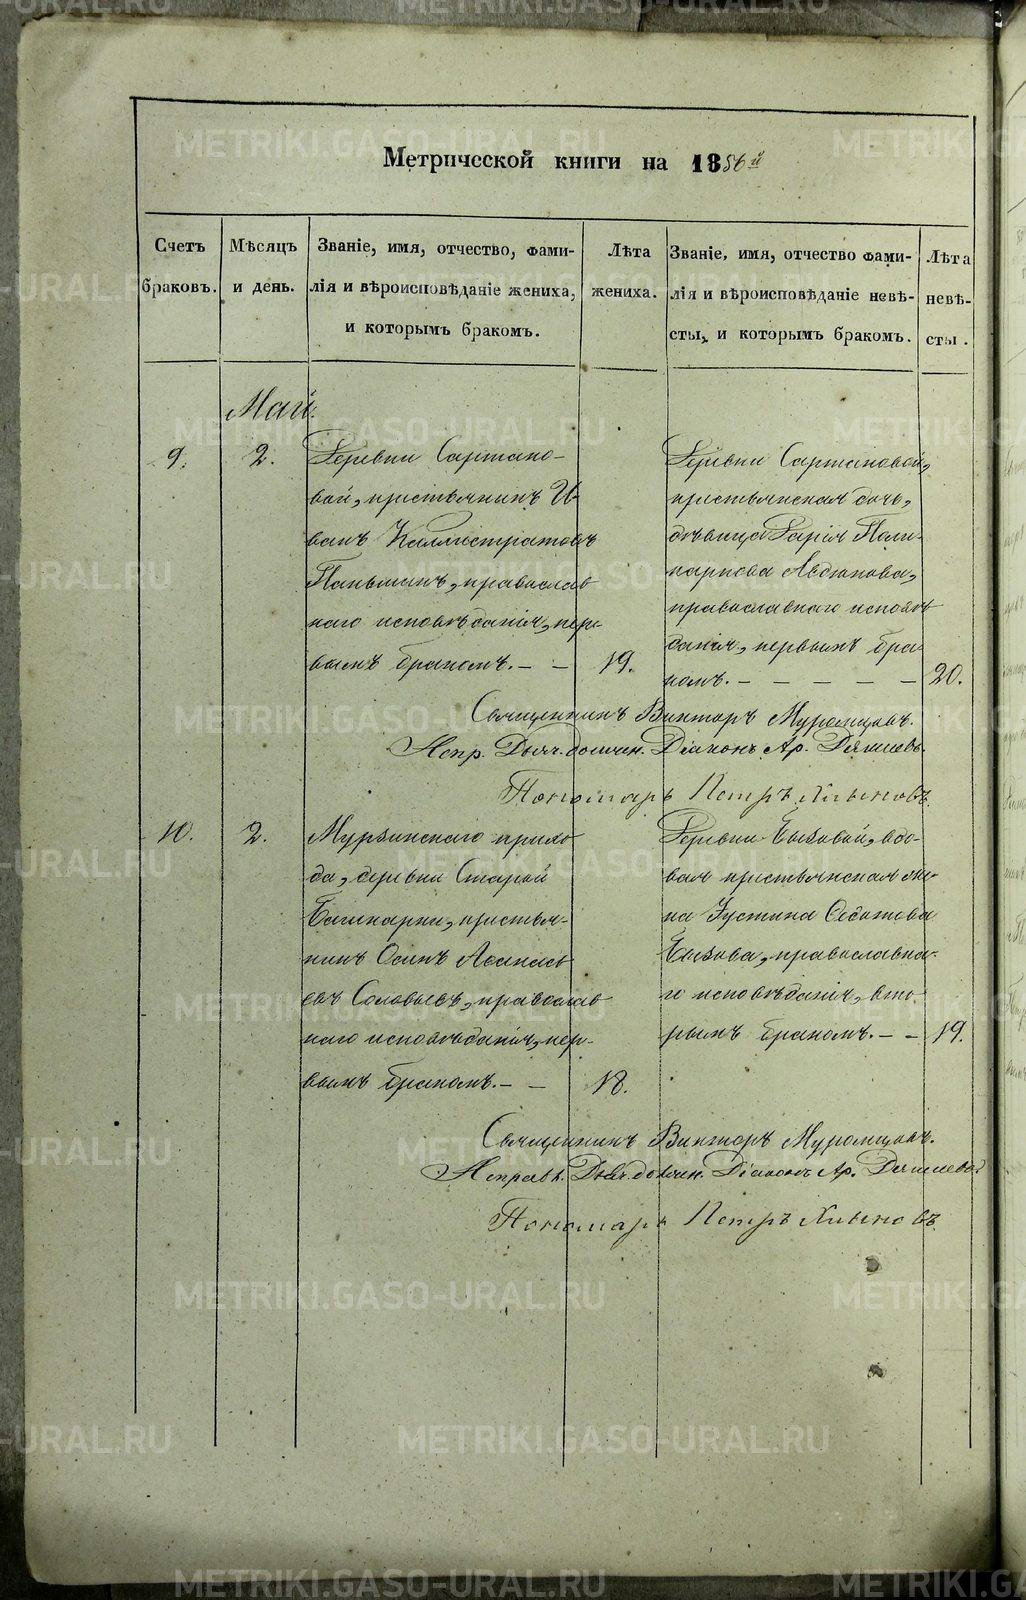 Метрической книги на 1886й
Счетъ браковъ.
Мѣсяцъ и день.
Званіе, имя, отчество, фамилія и вѣроисповѣданіе жениха, и которымъ бракомъ.
Лѣта жениха.
Званіе, имя, отчество фамилія и вѣроисповѣданіе невѣсты, и которымъ бракомъ.
Лѣта невѣсты.
Май.
9.
2.
Деревни Сартако-
вой, крестьянинъ И-
ванъ Каллистратовъ
православ
наго исповѣданія, пер-
вымъ бракомъ. — —
19.
Деревни Сартаковой,
крестьянская дочь,
дѣвица Дарія Поли-
карпова Авдюкова,
православнаго исповѣ
данія, первымъ бра-
комъ. — — — — —
20.
Священникъ Викторъ Муромцовъ.
Испр. Дьяч. должн. Діаконъ Ар.
Пономарь Петръ Хлыновъ.
10.
2.
Мурзинскаго прихо
да, деревни Старой
Башкарки, крестья-
нинъ Осипъ Аѳанась
евъ Соловьевъ, православ
наго исповѣданія, пер-
вымъ бракомъ. — —
18.
Деревни Бызовой, вдо-
вая крестьянская же-
на Устина Ѳедотова
Бызова, православна-
го исповѣданія, вто-
рымъ бракомъ. — —
19.
Священникъ Викторъ Муромцовъ.
Исправл. Дьяч. должн. Діаконъ Ар.
Пономарь Петръ Хлыновъ.
METRIKI.GASO-URAL.RU